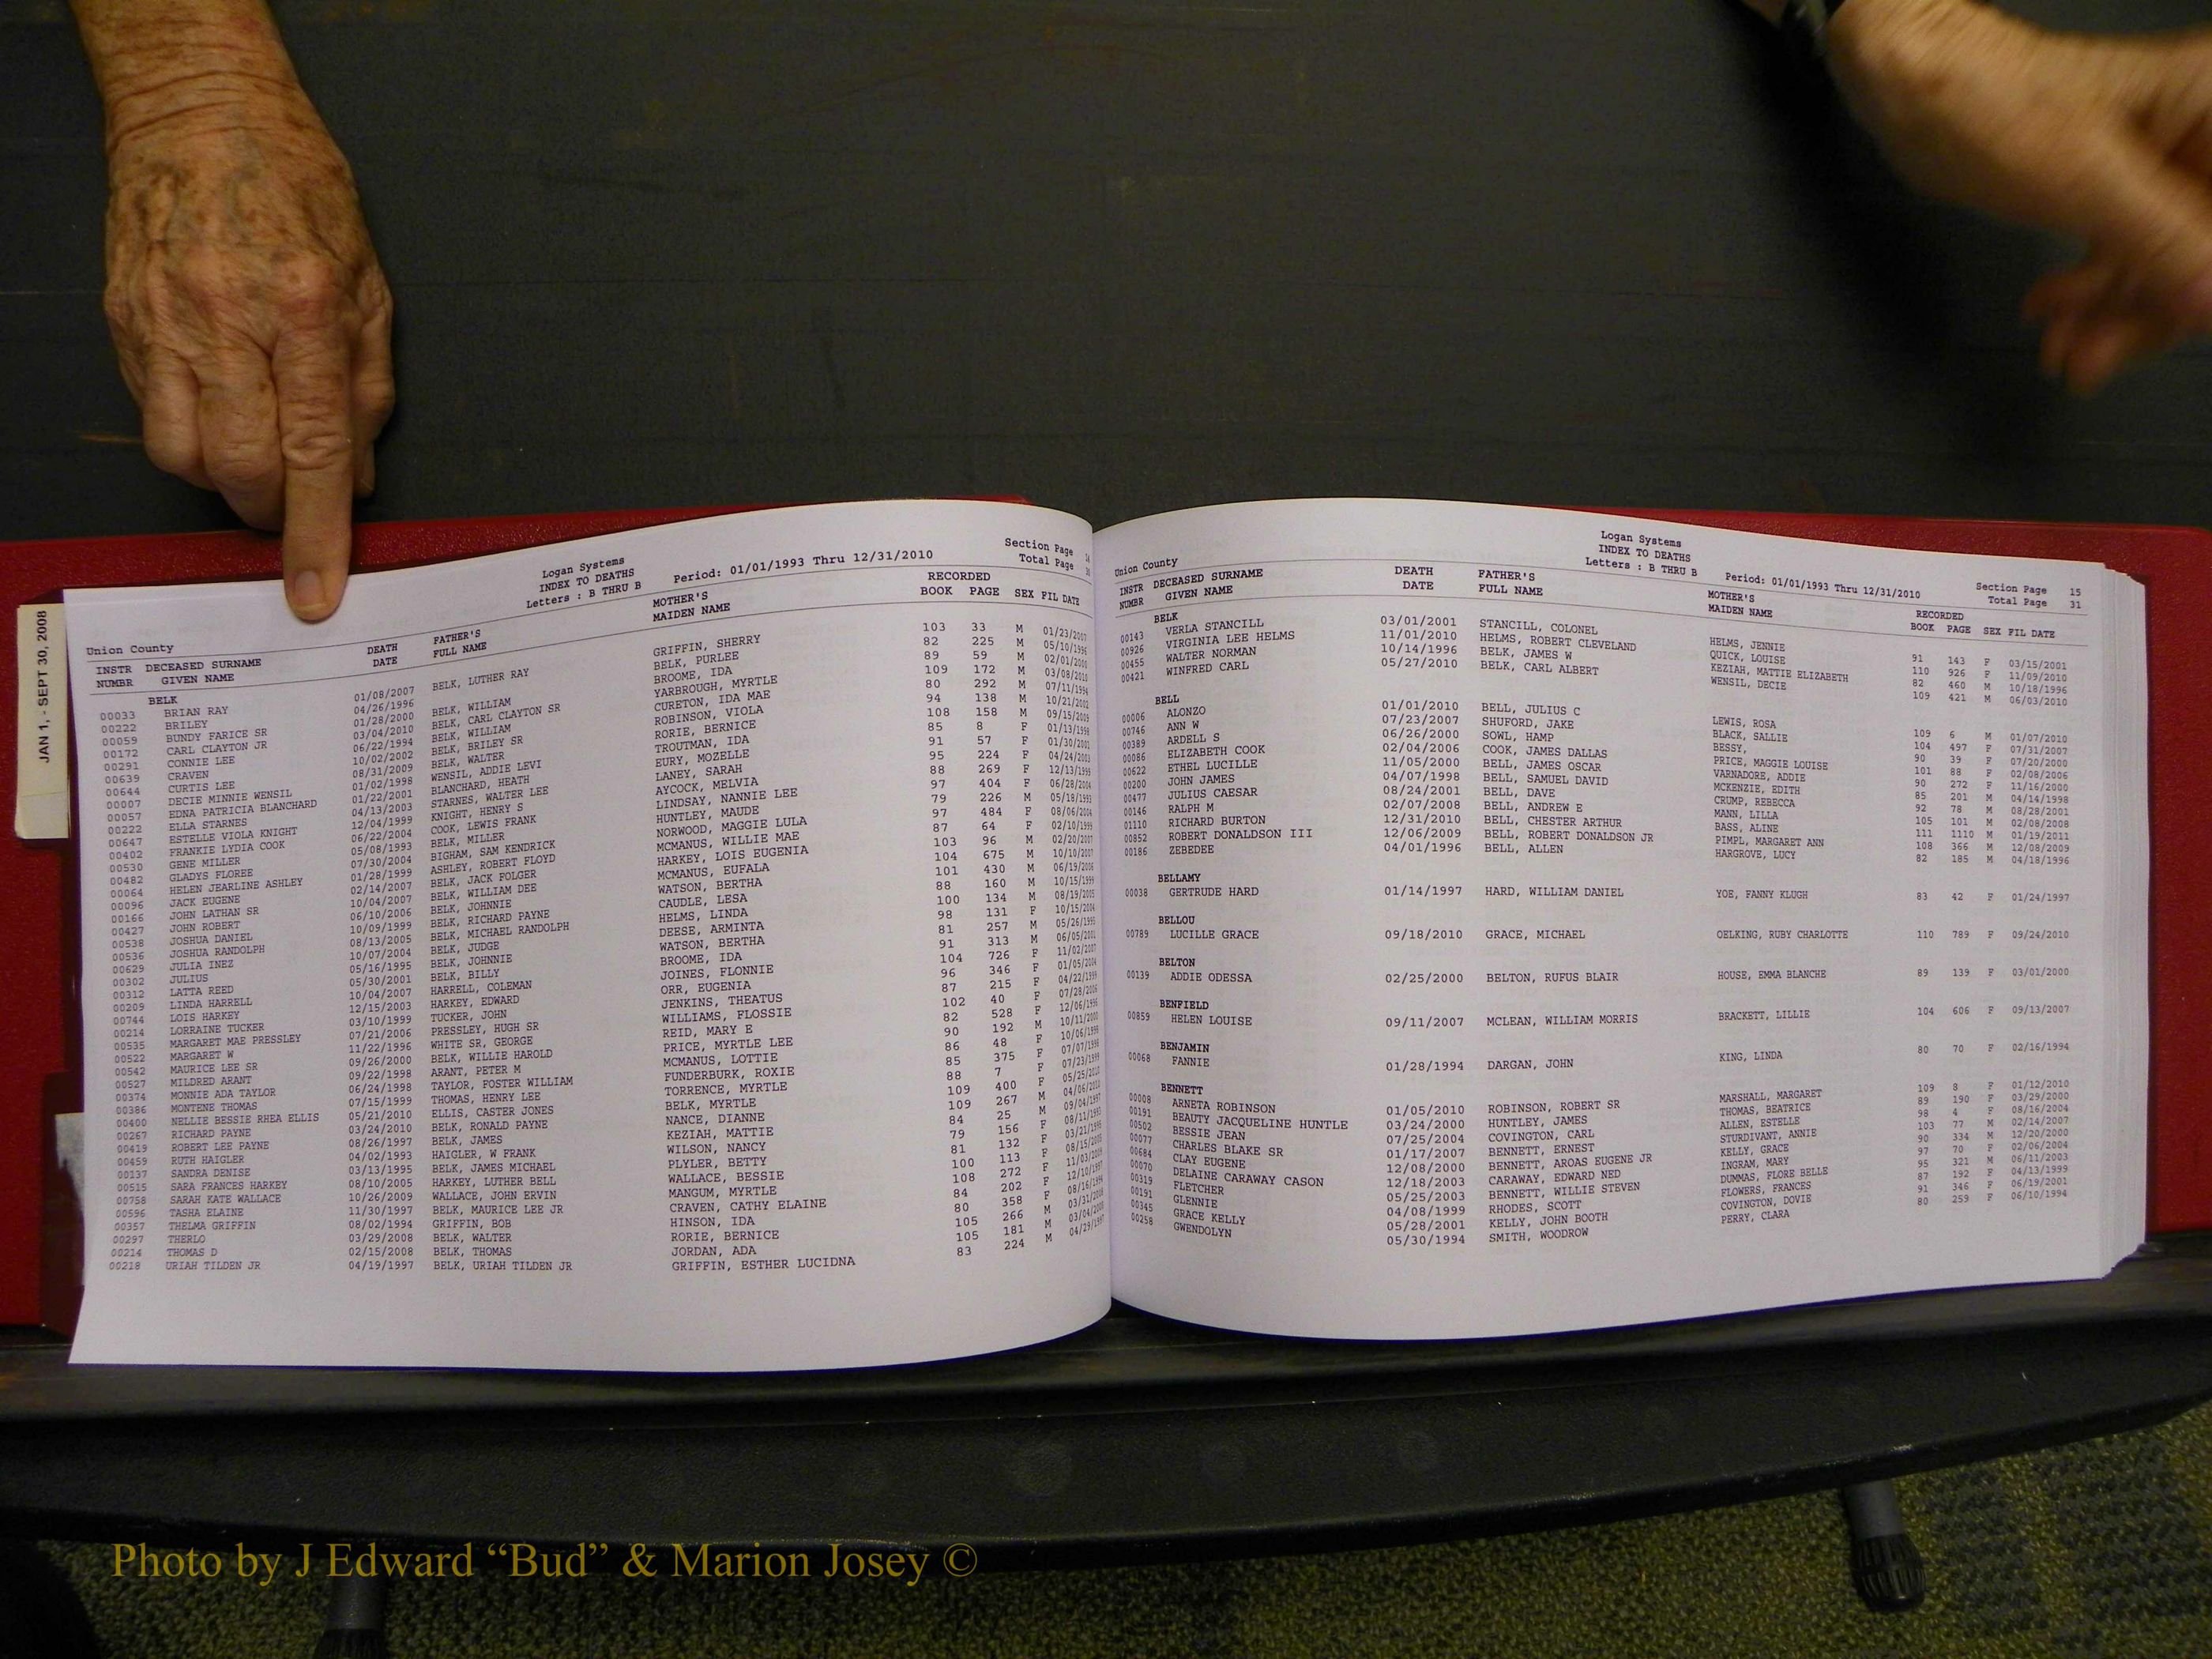 JAN 1, - SEPT 30, 2008
Logan Systems
INDEX TO DEATHS
Letters : B THRU B
Period: 01/01/1993 Thru 12/31/2010
Section Page 14
Total Page 30
Union County
INSTR DECEASED SURNAME DEATH FATHER'S MOTHER'S RECORDED
NUMBR GIVEN NAME DATE FULL NAME MAIDEN NAME BOOK PAGE SEX FIL DATE
BELK
00033 BRIAN RAY 01/08/2007 BELK, LUTHER RAY GRIFFIN, SHERRY 103 33 M 01/23/2007
00222 BRILEY 04/26/1996 BELK, PURLEE 82 225 M 05/10/1996
00059 BUNDY FARICE SR 01/28/2000 BELK, WILLIAM BROOME, IDA 89 59 M 02/01/2000
00172 CARL CLAYTON JR 03/04/2010 BELK, CARL CLAYTON SR YARBROUGH, MYRTLE 109 172 M 03/08/2010
00291 CONNIE LEE 06/22/1994 BELK, WILLIAM CURETON, IDA MAE 80 292 M 07/11/1994
00639 CRAVEN 10/02/2002 BELK, BRILEY SR ROBINSON, VIOLA 94 138 M 10/21/2002
00644 CURTIS LEE 08/31/2009 BELK, WALTER RORIE, BERNICE 108 158 M 09/15/2009
00007 DECIE MINNIE WENSIL 01/02/1998 WENSIL, ADDIE LEVI TROUTMAN, IDA 85 8 F 01/13/1998
00057 EDNA PATRICIA BLANCHARD 01/22/2001 BLANCHARD, HEATH EURY, MOZELLE 91 57 F 01/30/2001
00222 ELLA STARNES 04/13/2003 STARNES, WALTER LEE LANEY, SARAH 95 224 F 04/24/2003
00647 ESTELLE VIOLA KNIGHT 12/04/1999 KNIGHT, HENRY S AYCOCK, MELVIA 88 269 F 12/13/1999
00402 FRANKIE LYDIA COOK 06/22/2004 COOK, LEWIS FRANK LINDSAY, NANNIE LEE 97 404 F 06/28/2004
00530 GENE MILLER 05/08/1993 BELK, MILLER HUNTLEY, MAUDE 79 226 M 05/18/1993
00482 GLADYS FLOREE 07/30/2004 BIGHAM, SAM KENDRICK NORWOOD, MAGGIE LULA 97 484 F 08/06/2004
00064 HELEN JEARLINE ASHLEY 01/28/1999 ASHLEY, ROBERT FLOYD MCMANUS, WILLIE MAE 87 64 F 02/10/1999
00096 JACK EUGENE 02/14/2007 BELK, JACK FOLGER HARKEY, LOIS EUGENIA 103 96 M 02/20/2007
00166 JOHN LATHAN SR 10/04/2007 BELK, WILLIAM DEE MCMANUS, EUFALA 104 675 M 10/10/2007
00427 JOHN ROBERT 06/10/2006 BELK, JOHNNIE WATSON, BERTHA 101 430 M 06/19/2006
00538 JOSHUA DANIEL 10/09/1999 BELK, RICHARD PAYNE CAUDLE, LESA 88 160 M 10/15/1999
00536 JOSHUA RANDOLPH 08/13/2005 BELK, MICHAEL RANDOLPH HELMS, LINDA 100 134 M 08/19/2005
00629 JULIA INEZ 10/07/2004 BELK, JUDGE DEESE, ARMINTA 98 131 F 10/15/2004
00302 JULIUS 05/16/1995 BELK, JOHNNIE WATSON, BERTHA 81 257 M 05/26/1995
00312 LATTA REED 05/30/2001 BELK, BILLY BROOME, IDA 91 313 M 06/05/2001
00209 LINDA HARRELL 10/04/2007 HARRELL, COLEMAN JOINES, FLONNIE 104 726 F 11/02/2007
00744 LOIS HARKEY 12/15/2003 HARKEY, EDWARD ORR, EUGENIA 96 346 F 01/05/2004
00214 LORRAINE TUCKER 03/10/1999 TUCKER, JOHN JENKINS, THEATUS 87 215 F 04/22/1999
00535 MARGARET MAE PRESSLEY 07/21/2006 PRESSLEY, HUGH SR WILLIAMS, FLOSSIE 102 40 F 07/28/2006
00522 MARGARET W 11/22/1996 WHITE SR, GEORGE REID, MARY E 82 528 F 12/06/1996
00542 MAURICE LEE SR 09/26/2000 BELK, WILLIE HAROLD PRICE, MYRTLE LEE 90 192 M 10/11/2000
00527 MILDRED ARANT 09/22/1998 ARANT, PETER M MCMANUS, LOTTIE 86 48 F 10/06/1998
00374 MONNIE ADA TAYLOR 06/24/1998 TAYLOR, FOSTER WILLIAM FUNDERBURK, ROXIE 85 375 F 07/07/1998
00386 MONTENE THOMAS 07/15/1999 THOMAS, HENRY LEE TORRENCE, MYRTLE 88 7 F 07/23/1999
00400 NELLIE BESSIE RHEA ELLIS 05/21/2010 ELLIS, CASTER JONES BELK, MYRTLE 109 400 F 05/25/2010
00267 RICHARD PAYNE 03/24/2010 BELK, RONALD PAYNE NANCE, DIANNE 109 267 M 04/06/2010
00419 ROBERT LEE PAYNE 08/26/1997 BELK, JAMES KEZIAH, MATTIE 84 25 M 09/04/1997
00459 RUTH HAIGLER 04/02/1993 HAIGLER, W FRANK WILSON, NANCY 79 156 F 08/11/1993
00137 SANDRA DENISE 03/13/1995 BELK, JAMES MICHAEL PLYLER, BETTY 81 132 F 03/21/1995
00515 SARA FRANCES HARKEY 08/10/2005 HARKEY, LUTHER BELL WALLACE, BESSIE 100 113 F 08/15/2005
00758 SARAH KATE WALLACE 10/26/2009 WALLACE, JOHN ERVIN MANGUM, MYRTLE 108 272 F 11/03/2009
00596 TASHA ELAINE 11/30/1997 BELK, MAURICE LEE JR CRAVEN, CATHY ELAINE 84 202 F 12/10/1997
00357 THELMA GRIFFIN 08/02/1994 GRIFFIN, BOB HINSON, IDA 80 358 F 08/16/1994
00297 THERLO 03/29/2008 BELK, WALTER RORIE, BERNICE 105 266 M 03/31/2008
00214 THOMAS D 02/15/2008 BELK, THOMAS JORDAN, ADA 105 181 M 03/04/2008
00218 URIAH TILDEN JR 04/19/1997 BELK, URIAH TILDEN JR GRIFFIN, ESTHER LUCIDNA 83 224 M 04/29/1997
Logan Systems
INDEX TO DEATHS
Letters : B THRU B
Period: 01/01/1993 Thru 12/31/2010
Section Page 15
Total Page 31
Union County
INSTR DECEASED SURNAME DEATH FATHER'S MOTHER'S RECORDED
NUMBR GIVEN NAME DATE FULL NAME MAIDEN NAME BOOK PAGE SEX FIL DATE
BELK
00143 VERLA STANCILL 03/01/2001 STANCILL, COLONEL HELMS, JENNIE 91 143 F 03/15/2001
00926 VIRGINIA LEE HELMS 11/01/2010 HELMS, ROBERT CLEVELAND QUICK, LOUISE 110 926 F 11/09/2010
00455 WALTER NORMAN 10/14/1996 BELK, JAMES W KEZIAH, MATTIE ELIZABETH 82 460 M 10/18/1996
00421 WINFRED CARL 05/27/2010 BELK, CARL ALBERT WENSIL, DECIE 109 421 M 06/03/2010
BELL
00006 ALONZO 01/01/2010 BELL, JULIUS C LEWIS, ROSA 109 6 M 01/07/2010
00746 ANN W 07/23/2007 SHUFORD, JAKE BLACK, SALLIE 104 497 F 07/31/2007
00389 ARDELL S 06/26/2000 SOWL, HAMP BESSY, 90 39 F 07/20/2000
00086 ELIZABETH COOK 02/04/2006 COOK, JAMES DALLAS PRICE, MAGGIE LOUISE 101 88 F 02/08/2006
00622 ETHEL LUCILLE 11/05/2000 BELL, JAMES OSCAR VARNADORE, ADDIE 90 272 F 11/16/2000
00200 JOHN JAMES 04/07/1998 BELL, SAMUEL DAVID MCKENZIE, EDITH 85 201 M 04/14/1998
00477 JULIUS CAESAR 08/24/2001 BELL, DAVE CRUMP, REBECCA 92 78 M 08/28/2001
00146 RALPH M 02/07/2008 BELL, ANDREW E MANN, LILLA 105 101 M 02/08/2008
01110 RICHARD BURTON 12/31/2010 BELL, CHESTER ARTHUR BASS, ALINE 111 1110 M 01/19/2011
00852 ROBERT DONALDSON III 12/06/2009 BELL, ROBERT DONALDSON JR PIMPL, MARGARET ANN 108 366 M 12/08/2009
00186 ZEBEDEE 04/01/1996 BELL, ALLEN HARGROVE, LUCY 82 185 M 04/18/1996
BELLAMY
00038 GERTRUDE HARD 01/14/1997 HARD, WILLIAM DANIEL YOE, FANNY KLUGH 83 42 F 01/24/1997
BELLOU
00789 LUCILLE GRACE 09/18/2010 GRACE, MICHAEL OELKING, RUBY CHARLOTTE 110 789 F 09/24/2010
BELTON
00139 ADDIE ODESSA 02/25/2000 BELTON, RUFUS BLAIR HOUSE, EMMA BLANCHE 89 139 F 03/01/2000
BENFIELD
00859 HELEN LOUISE 09/11/2007 MCLEAN, WILLIAM MORRIS BRACKETT, LILLIE 104 606 F 09/13/2007
BENJAMIN
00068 FANNIE 01/28/1994 DARGAN, JOHN KING, LINDA 80 70 F 02/16/1994
BENNETT
00008 ARNETA ROBINSON 01/05/2010 ROBINSON, ROBERT SR MARSHALL, MARGARET 109 8 F 01/12/2010
00191 BEAUTY JACQUELINE HUNTLE 03/24/2000 HUNTLEY, JAMES THOMAS, BEATRICE 89 190 F 03/29/2000
00502 BESSIE JEAN 07/25/2004 COVINGTON, CARL ALLEN, ESTELLE 98 4 F 08/16/2004
00077 CHARLES BLAKE SR 01/17/2007 BENNETT, ERNEST STURDIVANT, ANNIE 103 77 M 02/14/2007
00684 CLAY EUGENE 12/08/2000 BENNETT, AROAS EUGENE JR KELLY, GRACE 90 334 M 12/20/2000
00070 DELAINE CARAWAY CASON 12/18/2003 CARAWAY, EDWARD NED INGRAM, MARY 97 70 F 02/06/2004
00319 FLETCHER 05/25/2003 BENNETT, WILLIE STEVEN DUMMAS, FLORE BELLE 95 321 M 06/11/2003
00191 GLENNIE 04/08/1999 RHODES, SCOTT FLOWERS, FRANCES 87 192 F 04/13/1999
00345 GRACE KELLY 05/28/2001 KELLY, JOHN BOOTH COVINGTON, DOVIE 91 346 F 06/19/2001
00258 GWENDOLYN 05/30/1994 SMITH, WOODROW PERRY, CLARA 80 259 F 06/10/1994
Photo by J Edward “Bud” & Marion Josey ©